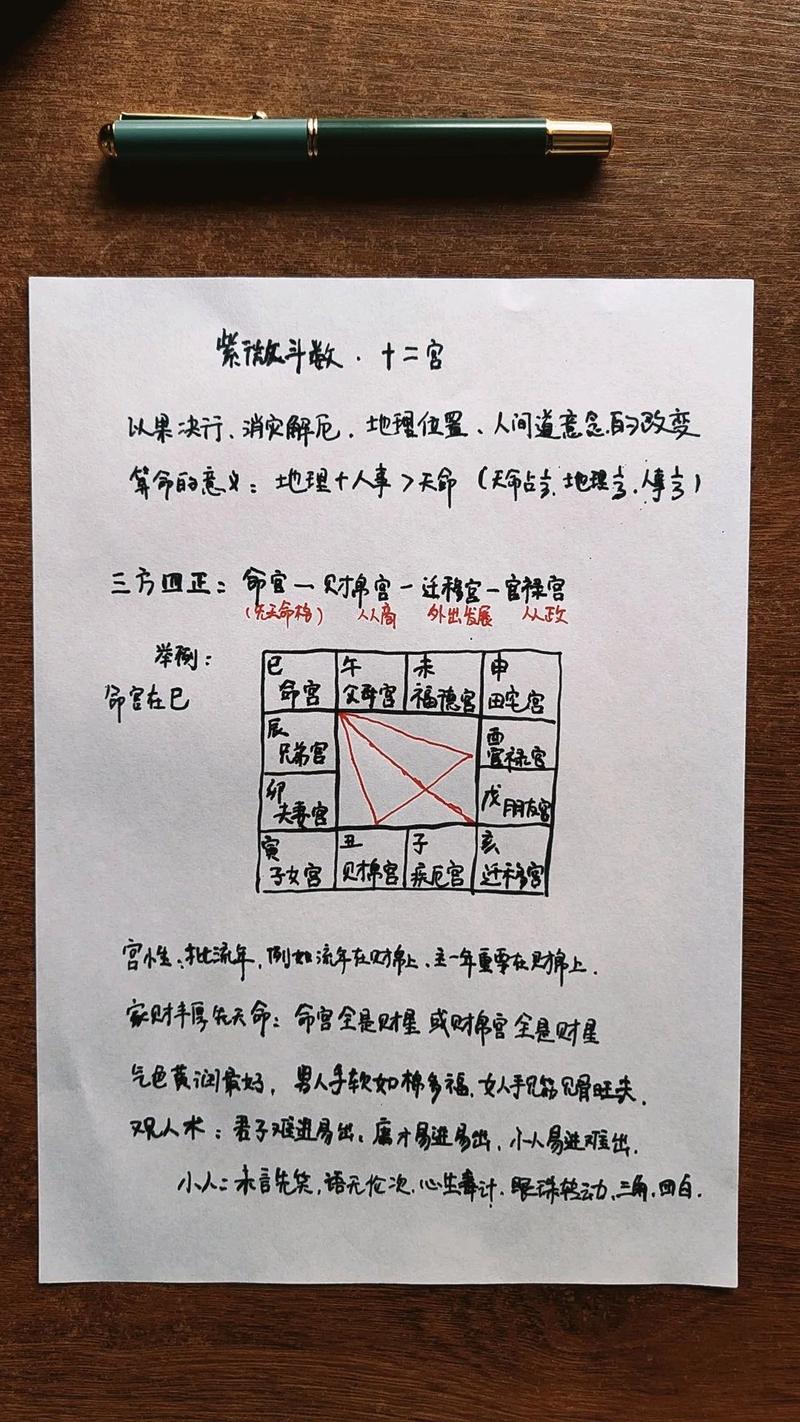 紫微斗数·十二宫
以果决行、消灾解厄、地理位置、人间道意念的改变
算命的意义：地理+人事>天命（天命占⅓、地理⅓、人事⅓）
三方四正：命宫—财帛宫—迁移宫—官禄宫
（先天命格） 从商 外出发展 从政
举例：
命宫在巳
巳 午 未 申
命宫 父母宫 福德宫 田宅宫
辰 酉
兄弟宫 官禄宫
卯 戌
夫妻宫 朋友宫
寅 丑 子 亥
子女宫 财帛宫 疾厄宫 迁移宫
宫性、批流年，例如流年在财帛上、主一年重要在财帛上．
家财丰厚先天命：命宫全是财星 或财帛宫全是财星
气色黄润最好，男人手软如棉多福，女人手见筋见骨旺夫．
观人术：君子难进易出、庸才易进易出、小人易进难出．
小人：未言先笑，语无伦次，心生毒计，眼珠转动，三角，四白．